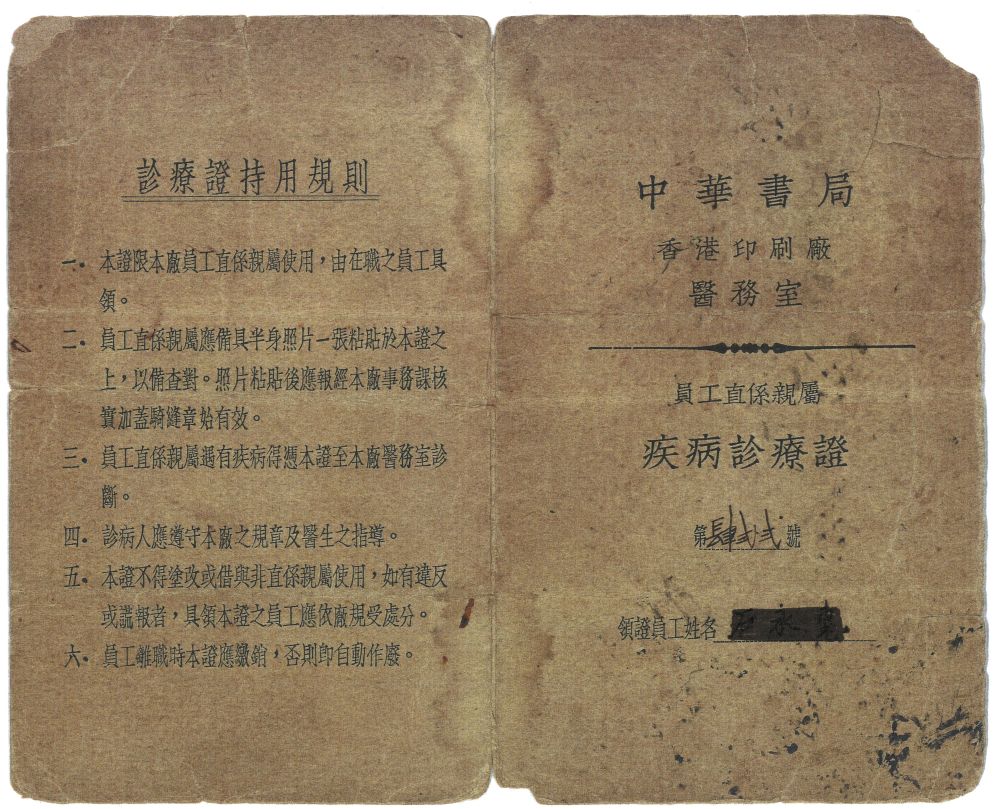 診療證持用規則
一. 本證限本廠員工直係親屬使用，由在職之員工具
領。
二. 員工直係親屬應備具半身照片一張粘貼於本證之
上，以備查對。照片粘貼後應報經本廠事務課核
實加蓋騎縫章始有效。
三. 員工直係親屬遇有疾病得憑本證至本廠醫務室診
斷。
四. 診病人應遵守本廠之規章及醫生之指導。
五. 本證不得塗改或借與非直係親屬使用，如有違反
或謊報者，具領本證之員工應依廠規受處分。
六. 員工離職時本證應繳銷，否則即自動作廢。
中華書局
香港印刷廠
醫務室
員工直係親屬
疾病診療證
第肆弍弍號
領證員工姓名